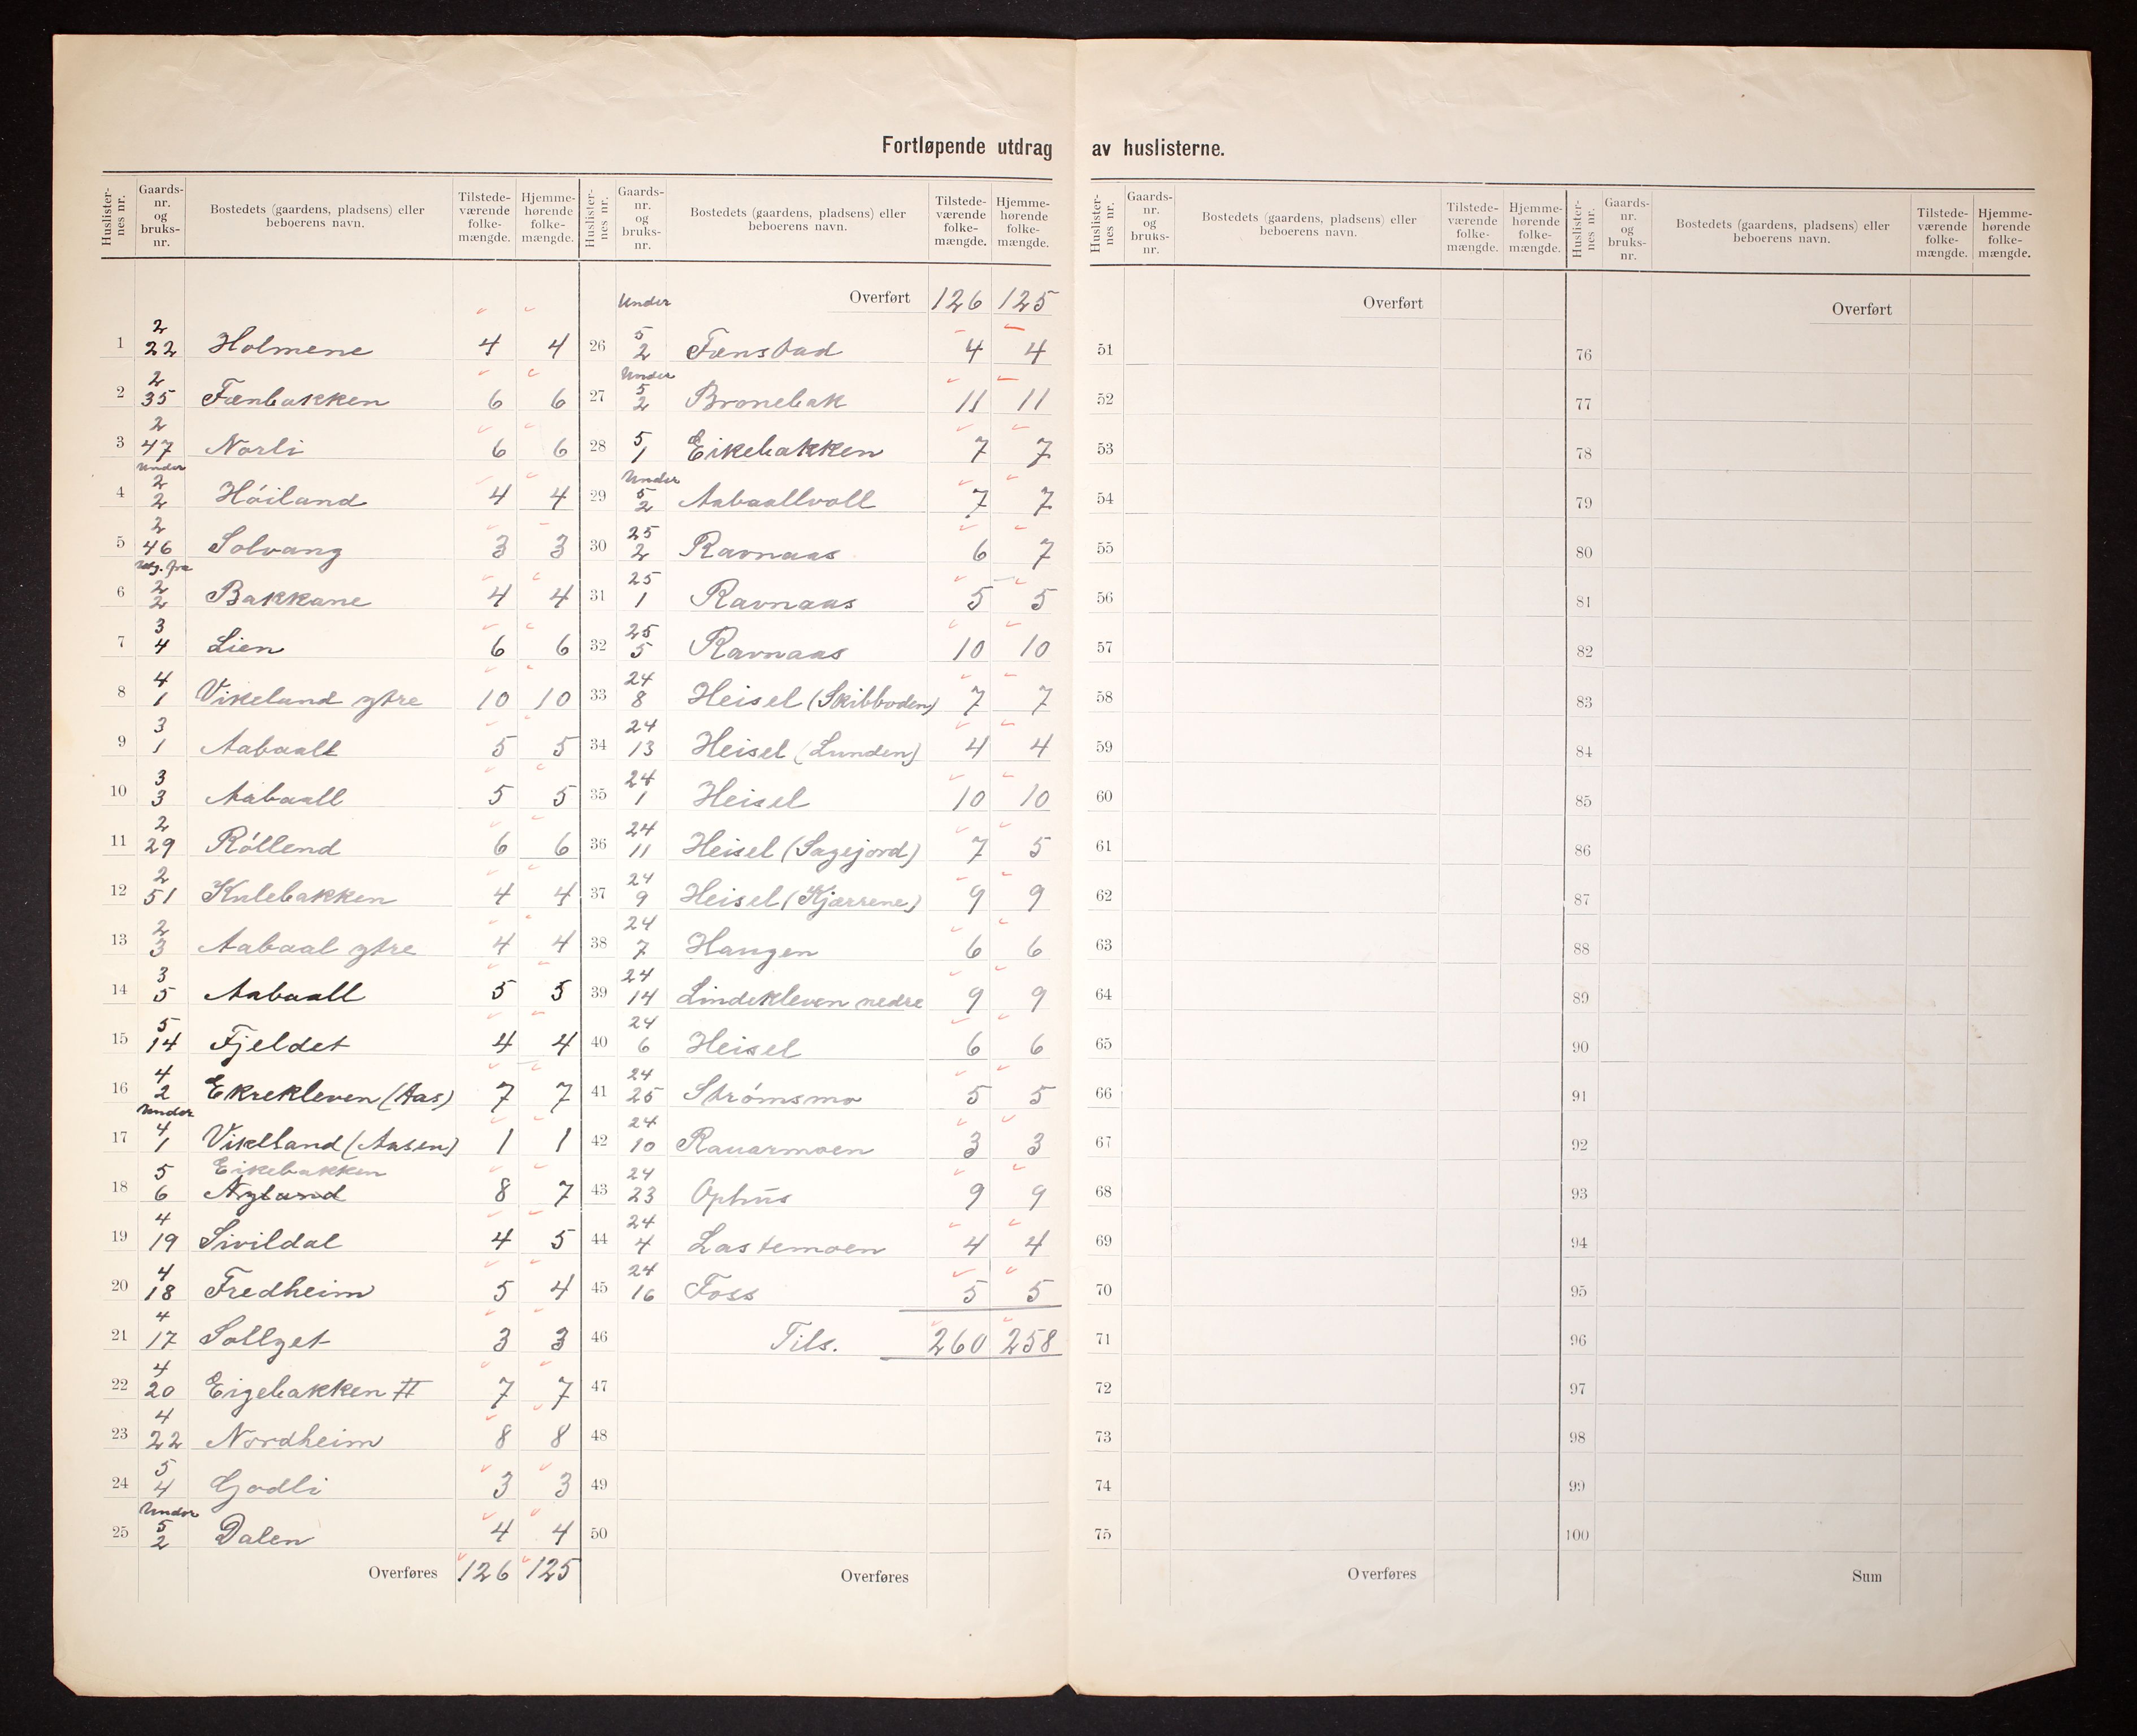 Fortløpende utdrag av huslisterne.
Huslister-nes nr. Gaards-nr. og bruks-nr. Bostedets (gaardens, pladsens) eller beboerens navn. Tilstede-værende folke-mængde. Hjemme-hørende folke-mængde.
1 2 22 Holmene 4 4
2 2 35 Fænbakken 6 6
3 2 47 Norli 6 6
4 Under 2 2 Höiland 4 4
5 2 46 Solvang 3 3
6 Utg. fra 2 2 Bakkane 4 4
7 3 4 Lien 6 6
8 4 1 Vikeland ytre 10 10
9 3 1 Aabaall 5 5
10 3 3 Aabaall 5 5
11 2 29 Röllend 6 6
12 2 51 Kulebakken 4 4
13 2 3 Aabaal ytre 4 4
14 3 5 Aabaall 5 5
15 5 14 Fjeldet 4 4
16 4 2 Ekrekleven (Aas) 7 7
17 Under 4 1 Vikeland (Aasen) 1 1
Eikebakken
18 5 6 Nyland 8 7
19 4 19 Sivildal 4 5
20 4 18 Fredheim 5 4
21 4 17 Sollyet 3 3
22 4 20 Eigebakken II 7 7
23 4 22 Nordheim 8 8
24 5 4 Godli 3 3
25 Under 5 2 Dalen 4 4
Overføres 126 125
Huslister-nes nr. Gaards-nr. og bruks-nr. Bostedets (gaardens, pladsens) eller beboerens navn. Tilstede-værende folke-mængde. Hjemme-hørende folke-mængde.
Overført 126 125
26 Under 5 2 Fænstad 4 4
27 Under 5 2 Bronebak 11 11
28 5 1 Eikebakken 7 7
29 Under 5 2 Aabaallvoll 7 7
30 25 2 Ravnaas 6 7
31 25 1 Ravnaas 5 5
32 25 5 Ravnaas 10 10
33 24 8 Heisel (Skibboden) 7 7
34 24 13 Heisel (Lunden) 4 4
35 24 1 Heisel 10 10
36 24 11 Heisel (Sagejord) 7 5
37 24 9 Heisel (Kjærrene) 9 9
38 24 7 Haugen 6 6
39 24 14 Lindekleven nedre 9 9
40 24 6 Heisel 6 6
41 24 25 Strömsmo 5 5
42 24 10 Rauarmoen 3 3
43 24 23 Ophus 9 9
44 24 4 Lastemoen 4 4
45 24 16 Foss 5 5
46 Tils. 260 258
47
48
49
50
Overføres
Huslister-nes nr. Gaards-nr. og bruks-nr. Bostedets (gaardens, pladsens) eller beboerens navn. Tilstede-værende folke-mængde. Hjemme-hørende folke-mængde.
Overført
51
52
53
54
55
56
57
58
59
60
61
62
63
64
65
66
67
68
69
70
71
72
73
74
75
Overføres
Huslister-nes nr. Gaards-nr. og bruks-nr. Bostedets (gaardens, pladsens) eller beboerens navn. Tilstede-værende folke-mængde. Hjemme-hørende folke-mængde.
Overført
76
77
78
79
80
81
82
83
84
85
86
87
88
89
90
91
92
93
94
95
96
97
98
99
100
Sum